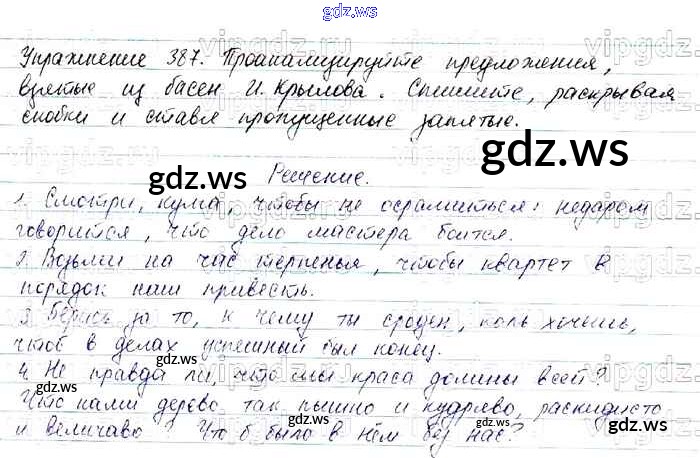 gdz.ws
Упражнение 387. Проанализируйте предложения,
взятые из басен И. Крылова. Спишите, раскрывая
скобки и ставя пропущенные запятые.
gdz.ws
Решение.
gdz.ws
1. Смотри, кума, чтобы не осрамиться: недаром
говорится, что дело мастера боится.
2. Возьми на час терпенья, чтобы квартет в
порядок наш привесть.
3. Берись за то, к чему ты сроден, коль хочешь,
чтоб в делах успешный был конец.
4. Не правда ли, что мы краса долины всей?
Что нами дерево так пышно и кудряво, раскидисто
и величаво? Что б было в нём без нас?
gdz.ws
gdz.ws
gdz.ws